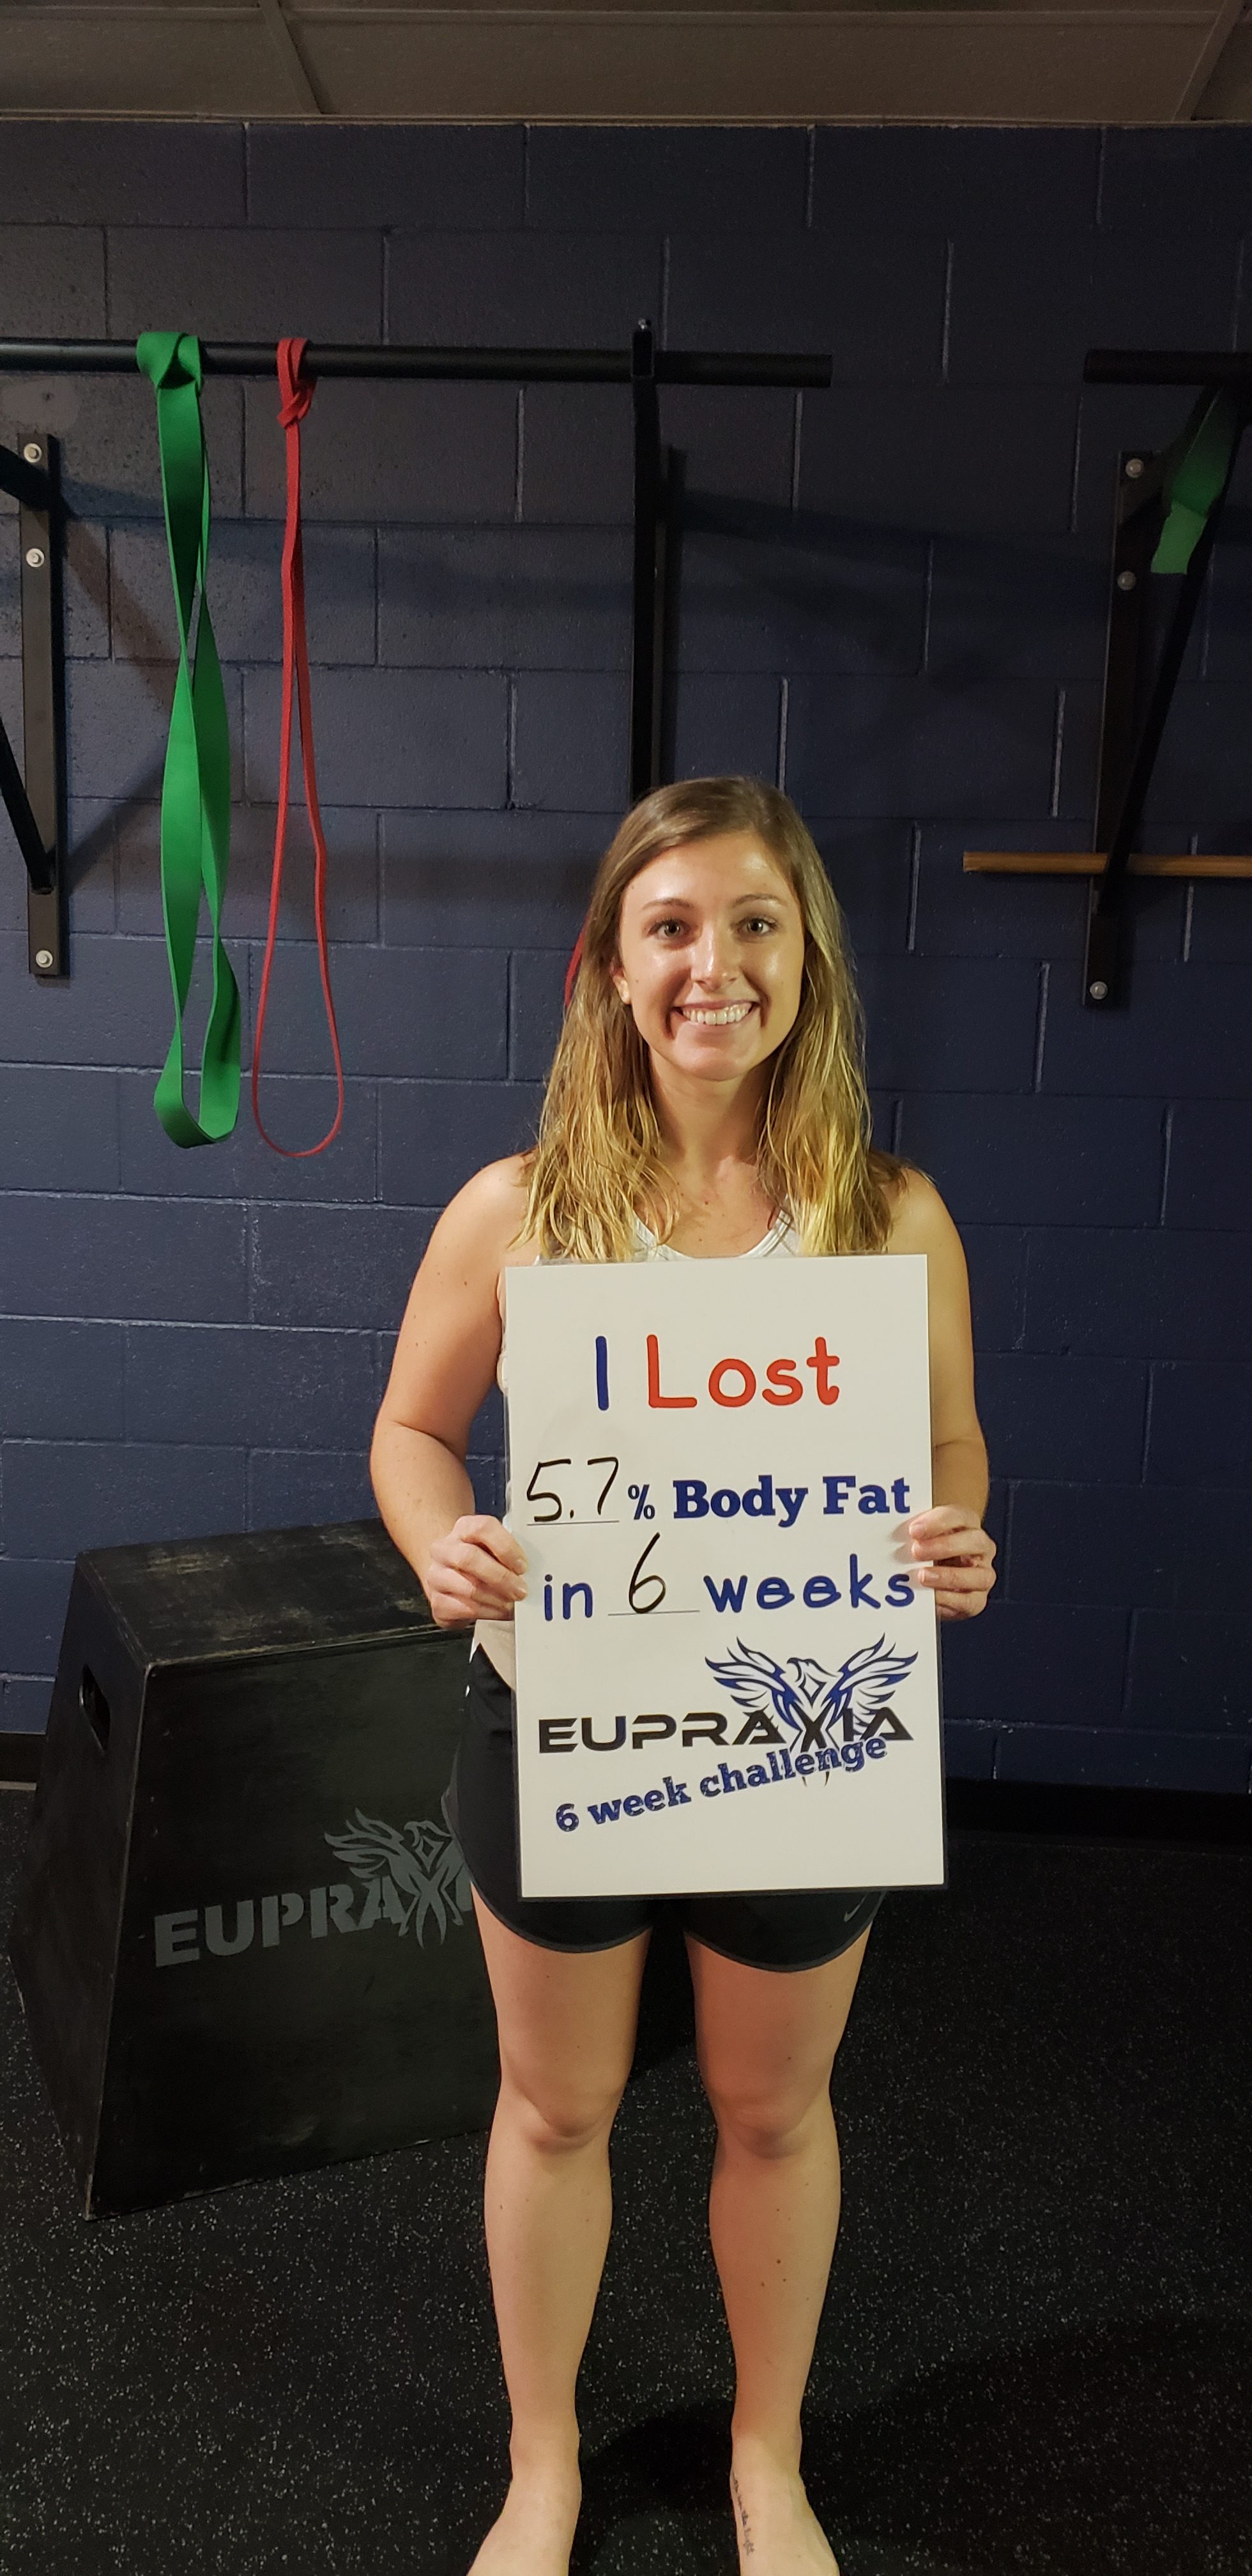 I Lost
5.7% Body Fat
in 6 weeks
EUPRAXIA
6 week challenge
EUPRAX